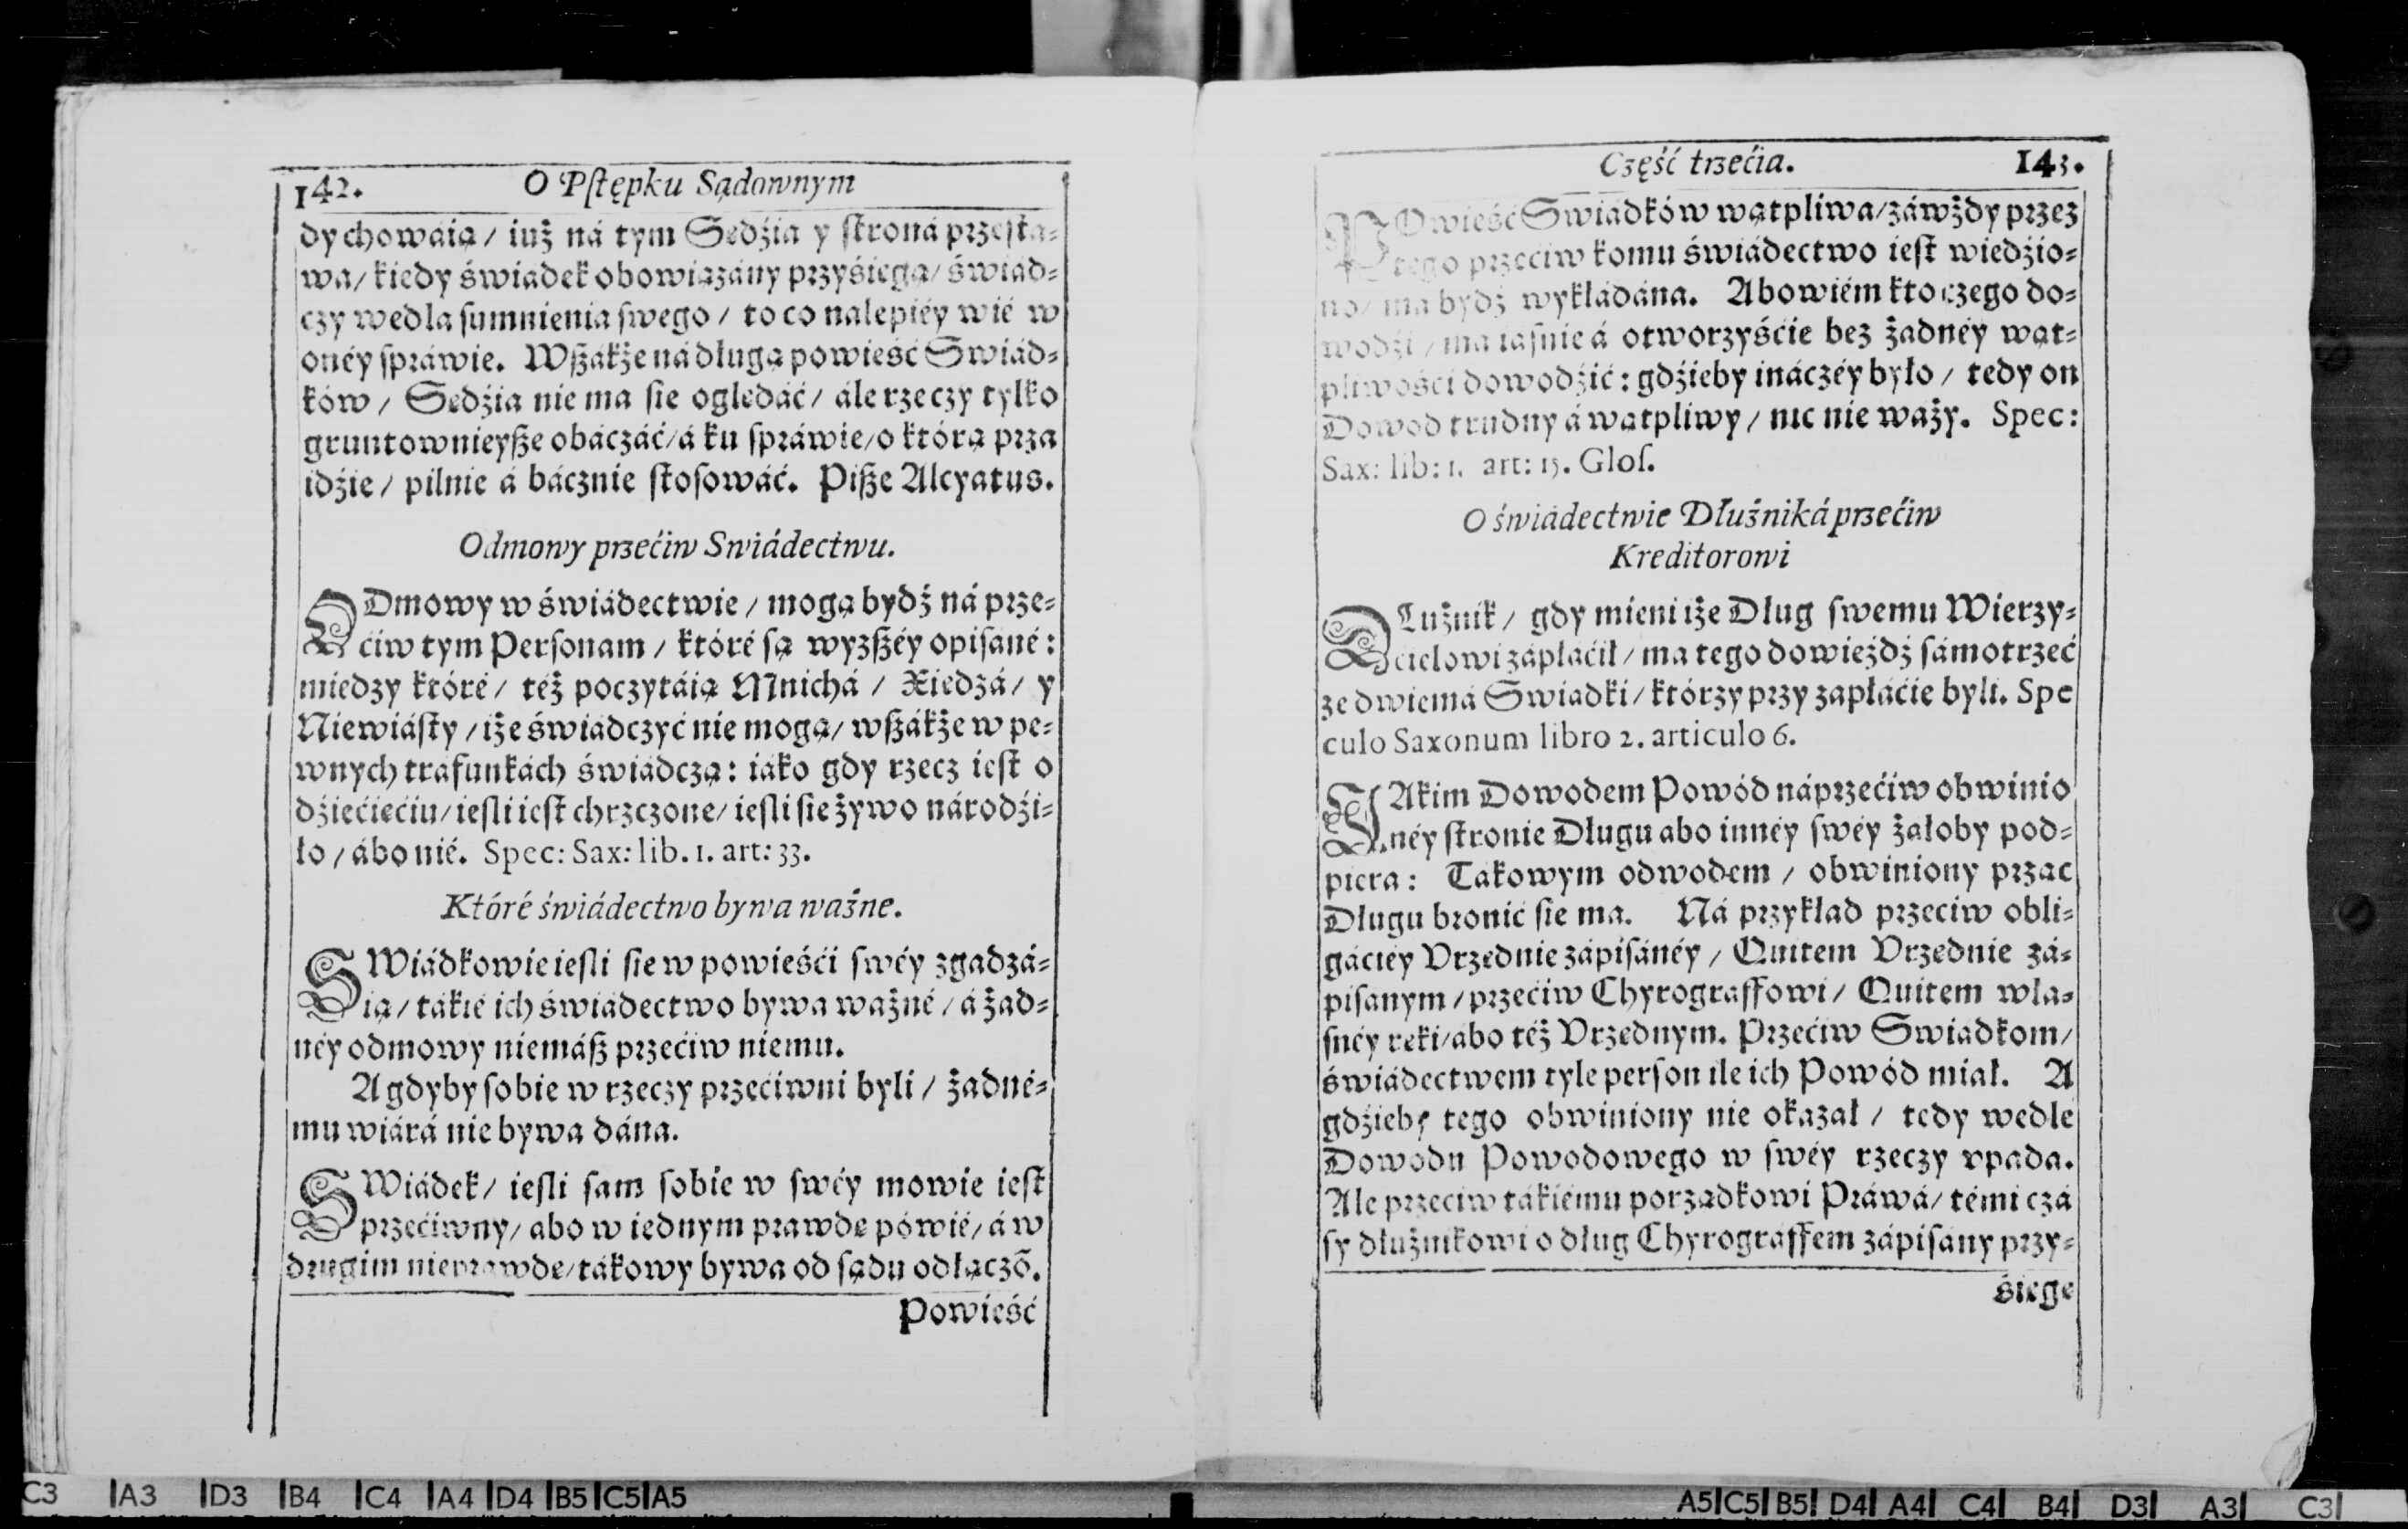 142. O Pſtępku Sądownym
dy chowáią / iuż ná tym Sędźia y ſtroná przeſta-
wa / kiedy świádek obowiązány przyśięgą / świad-
czy wedla ſumnienia ſwego / to co nalepiéy wié w
onéy ſpráwie. Wßákże ná długą powieść Swiád-
ków / Sędźia nie ma ſie oględáć / ále rzeczy tylko
gruntownieyße obáczáć / á ku ſpráwie / o którą prza
idźie / pilnie á bácznie ſtoſowáć. Piße Alcyatus.
Odmowy przećiw Swiádectwu.
ODmowy w świádectwie / mogą bydź ná prze-
ćiw tym Perſonam / któré ſą wyzßéy opiſáné:
miedzy któré / téż poczytáią Mnichá / Xiędzá / y
Niewiáſty / iże świádczyć nie mogą / wßákże w pe-
wnych trafunkách świádczą: iáko gdy rzecz ieſt o
dźiećięćiu / ieſli ieſt chrzczone / ieſli ſie żywo národźi-
ło / ábo nié. Spec: Sax: lib. 1. art: 33.
Któré świádectwo bywa ważne.
SWiádkowie ieſli ſie w powieśći ſwéy zgadzá-
ią / tákié ich świádectwo bywa ważné / á żad-
néy odmowy niemáß przećiw niemu.
A gdyby ſobie w rzeczy przećiwni byli / żadné-
mu wiárá nie bywa dána.
SWiádek / ieſli ſam ſobie w ſwéy mowie ieſt
przećiwny / abo w iednym prawdę powié / á w
drugim nieprawdę / tákowy bywa od ſądu odłączõ.
Powieść
Część trzećia. 143.
POwieść Swiádków wątpliwa / záwżdy przez
tego przećiw komu świádectwo ieſt wiedźio-
no / ma bydź wykłádána. Abowiém kto czego do-
wodźi / ma iáſnie á otworzyśćie bez żadnéy wąt-
pliwośći dowodźić: gdźieby ináczéy było / tedy on
Dowod trudny á wątpliwy / nic nie waży. Spec:
Sax: lib: 1. art: 15. Gloſ.
O świádectwie Dłużniká przećiw
Kreditorowi
DLużnik / gdy mieni iże Dług ſwemu Wierzy-
ćielowi zápłáćił / ma tego dowieźdź ſámotrzeć
ze dwiemá Swiadki / którzy przy zapłáćie byli. Spe
culo Saxonum libro 2. articulo 6.
IAkim Dowodem Powód náprzećiw obwinio
néy ſtronie Długu abo innéy ſwéy żałoby pod-
piera: Takowym odwodem / obwiniony przac
Długu bronić ſie ma. Ná przykład przećiw obli-
gáciéy Vrzędnie zápiſánéy / Quitem Vrzędnie zá-
piſanym / przećiw Chyrograffowi / Quitem wła-
ſnéy ręki / abo téż Vrzędnym. Przećiw Swiadkom /
świádectwem tyle perſon ile ich Powód miał. A
gdźieby tego obwiniony nie okazał / tedy wedle
Dowodu Powodowego w ſwéy rzeczy vpada.
Ale przećiw tákiému porządkowi Práwá / témi czá
ſy dłużnikowi o dług Chyrograffem zápiſany przy-
śięgę
C3 A3 D3 B4 C4 A4 D4 B5 C5 A5
A5 C5 B5 D4 A4 C4 B4 D3 A3 C3